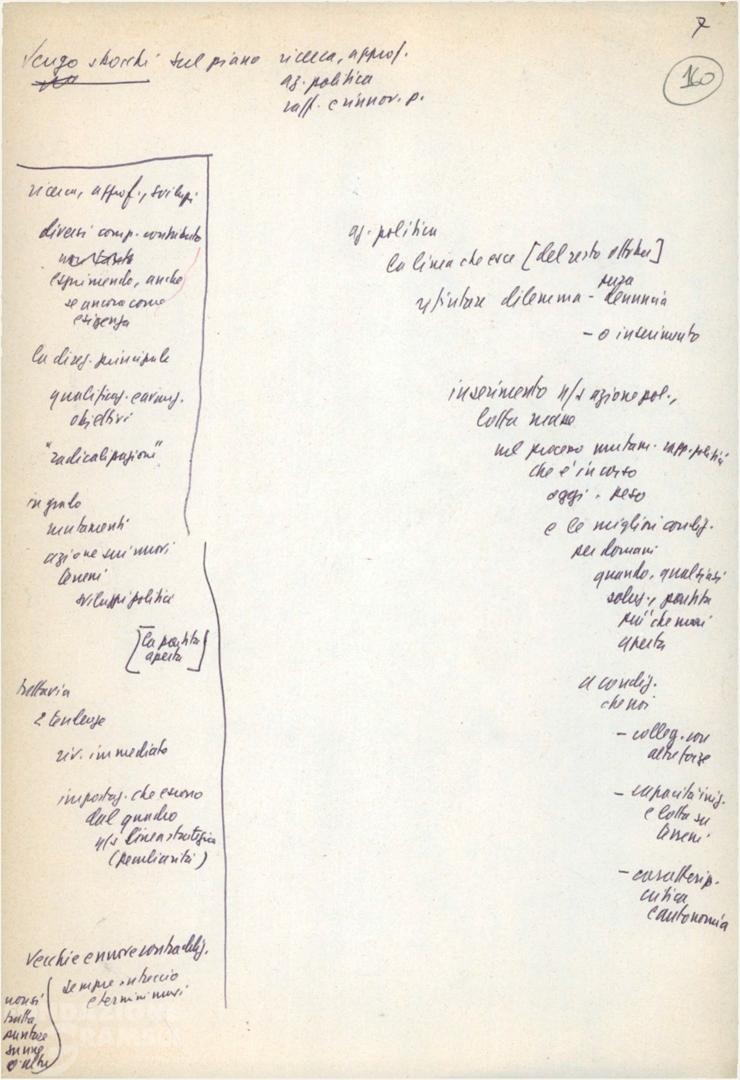 7
160
Vengo sbocchi sul piano ricerca, approf.
az. politica
raff. e rinnov. p.
ricerca, approf., svilupi
diversi comp. contributo
esprimendo, anche
se ancora come
esigenza
la direz. principale
qualificaz.
obiettivi
"radicalizzazioni"
in grado
mutamenti
azione sui nuovi
terreni
sviluppi politici
[la partita
aperta]
tuttavia
2 tendenze
riv. immediato
impostaz. che escono
dal quadro
n/s linea strategica
(peculiarità)
Vecchie e nuove contraddiz.
sempre intreccio
e termini nuovi
non si
tratta
puntare
su une
o altre
FONDAZIONE
GRAMSCI
az. politica
la linea che esce [del resto
rifiutare dilemma - denuncia
pura
- o inserimento
inserimento n/s azione pol.,
lotta
nel processo mutam. rapp. politici
che è in corso
oggi. peso
e le migliori condiz.
per domani
quando, qualsiasi
soluz., partita
più che mai
aperta
a condiz.
che noi
- colleg. con
altre forze
- capacità iniz.
e lotta su
terreni
- caratteriz.
critica
e autonomia